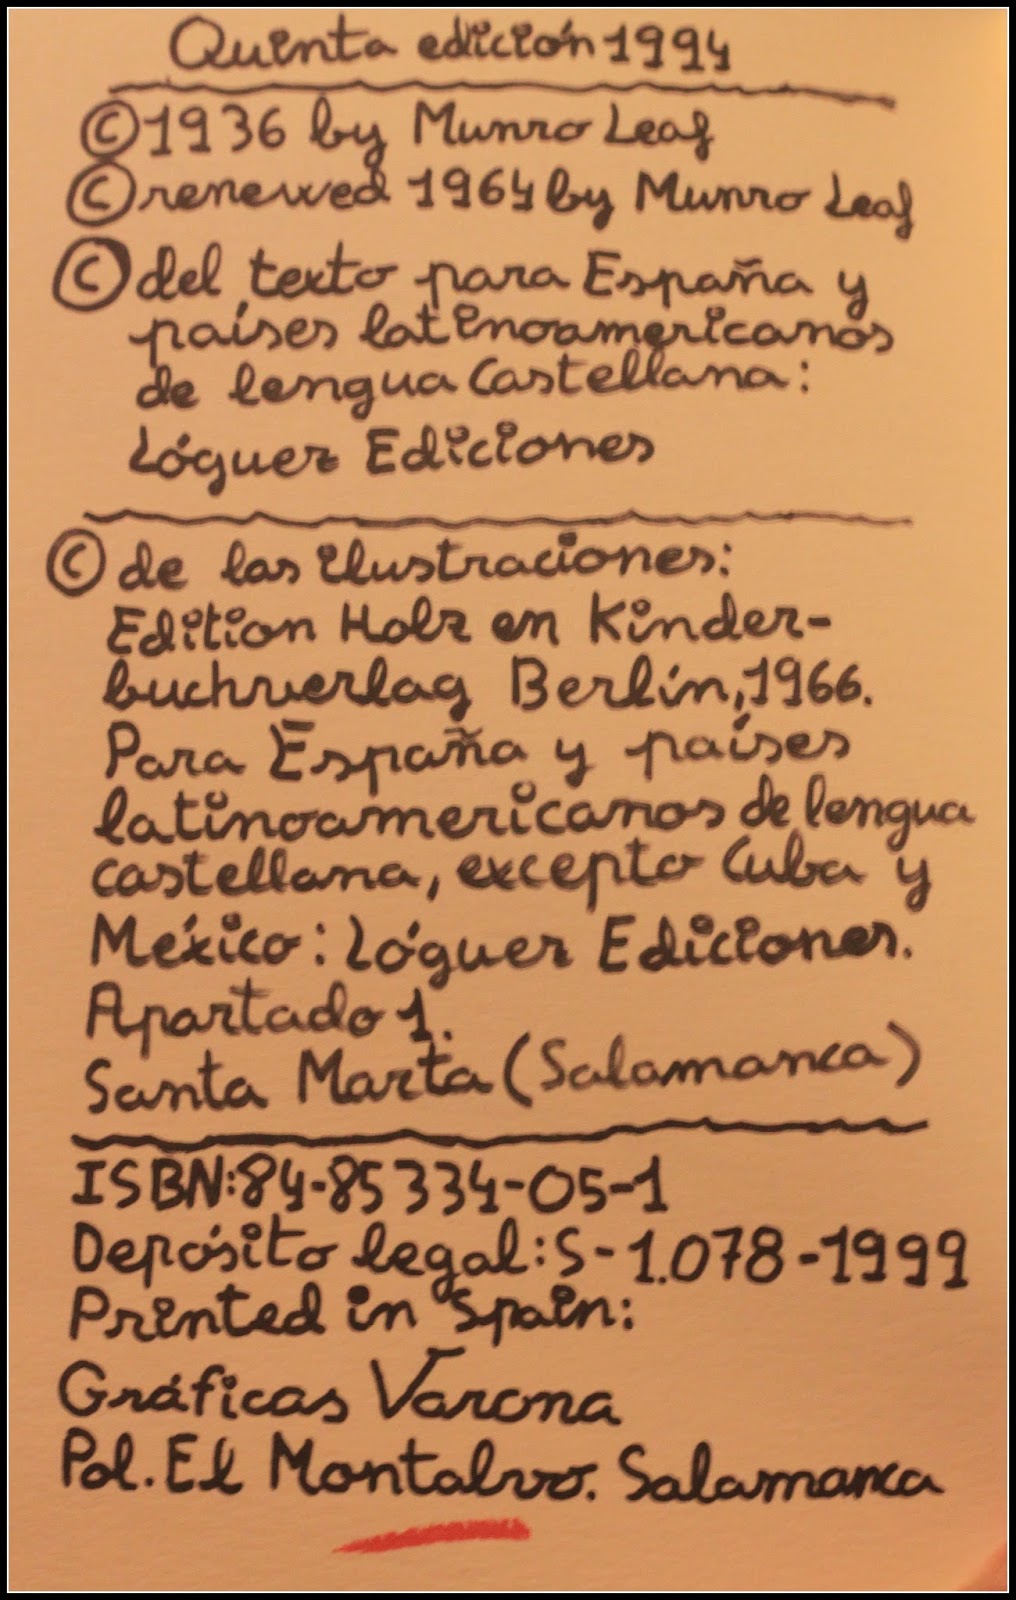 Quinta edición 1994
© 1936 by Munro Leaf
© renewed 1964 by Munro Leaf
© del texto para España y
países latinoamericanos
de lengua Castellana:
Lóguez Ediciones
© de las ilustraciones:
Edition Holz en Kinder-
buchverlag Berlín, 1966.
Para España y países
latinoamericanos de lengua
castellana, excepto Cuba y
México: Lóguez Ediciones.
Apartado 1.
Santa Marta (Salamanca)
ISBN: 84-85334-05-1
Depósito legal: S-1.078-1999
Printed in Spain:
Gráficas Varona
Pol. El Montalvo. Salamanca